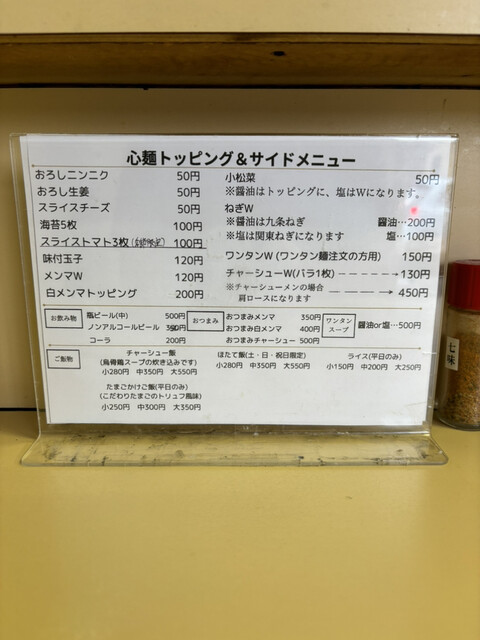 心麺トッピング＆サイドメニュー
おろしニンニク 50円
おろし生姜 50円
スライスチーズ 50円
海苔5枚 100円
スライストマト3枚 100円
味付玉子 120円
メンマW 120円
白メンマトッピング 200円
小松菜 50円
※醤油はトッピングに、塩はWになります。
ねぎW
※醤油は九条ねぎ 醤油…200円
※塩は関東ねぎになります 塩…100円
ワンタンW (ワンタン麺注文の方用) 150円
チャーシューW(バラ1枚) －－－－－→130円
※チャーシューメンの場合
肩ロースになります ― ― ― →450円
お飲み物
瓶ビール(中) 500円
ノンアルコールビール 円
コーラ 200円
おつまみ
おつまみメンマ 350円
おつまみ白メンマ 400円
おつまみチャーシュー 500円
ワンタン
スープ
醤油or塩…500円
ご飯物
チャーシュー飯
(烏骨鶏スープの炊き込みです)
小280円 中350円 大550円
ほたて飯(土・日・祝日限定)
小280円 中350円 大550円
ライス(平日のみ)
小150円 中200円 大250円
たまごかけご飯(平日のみ)
(こだわりたまごのトリュフ風味)
小250円 中300円 大350円
七味